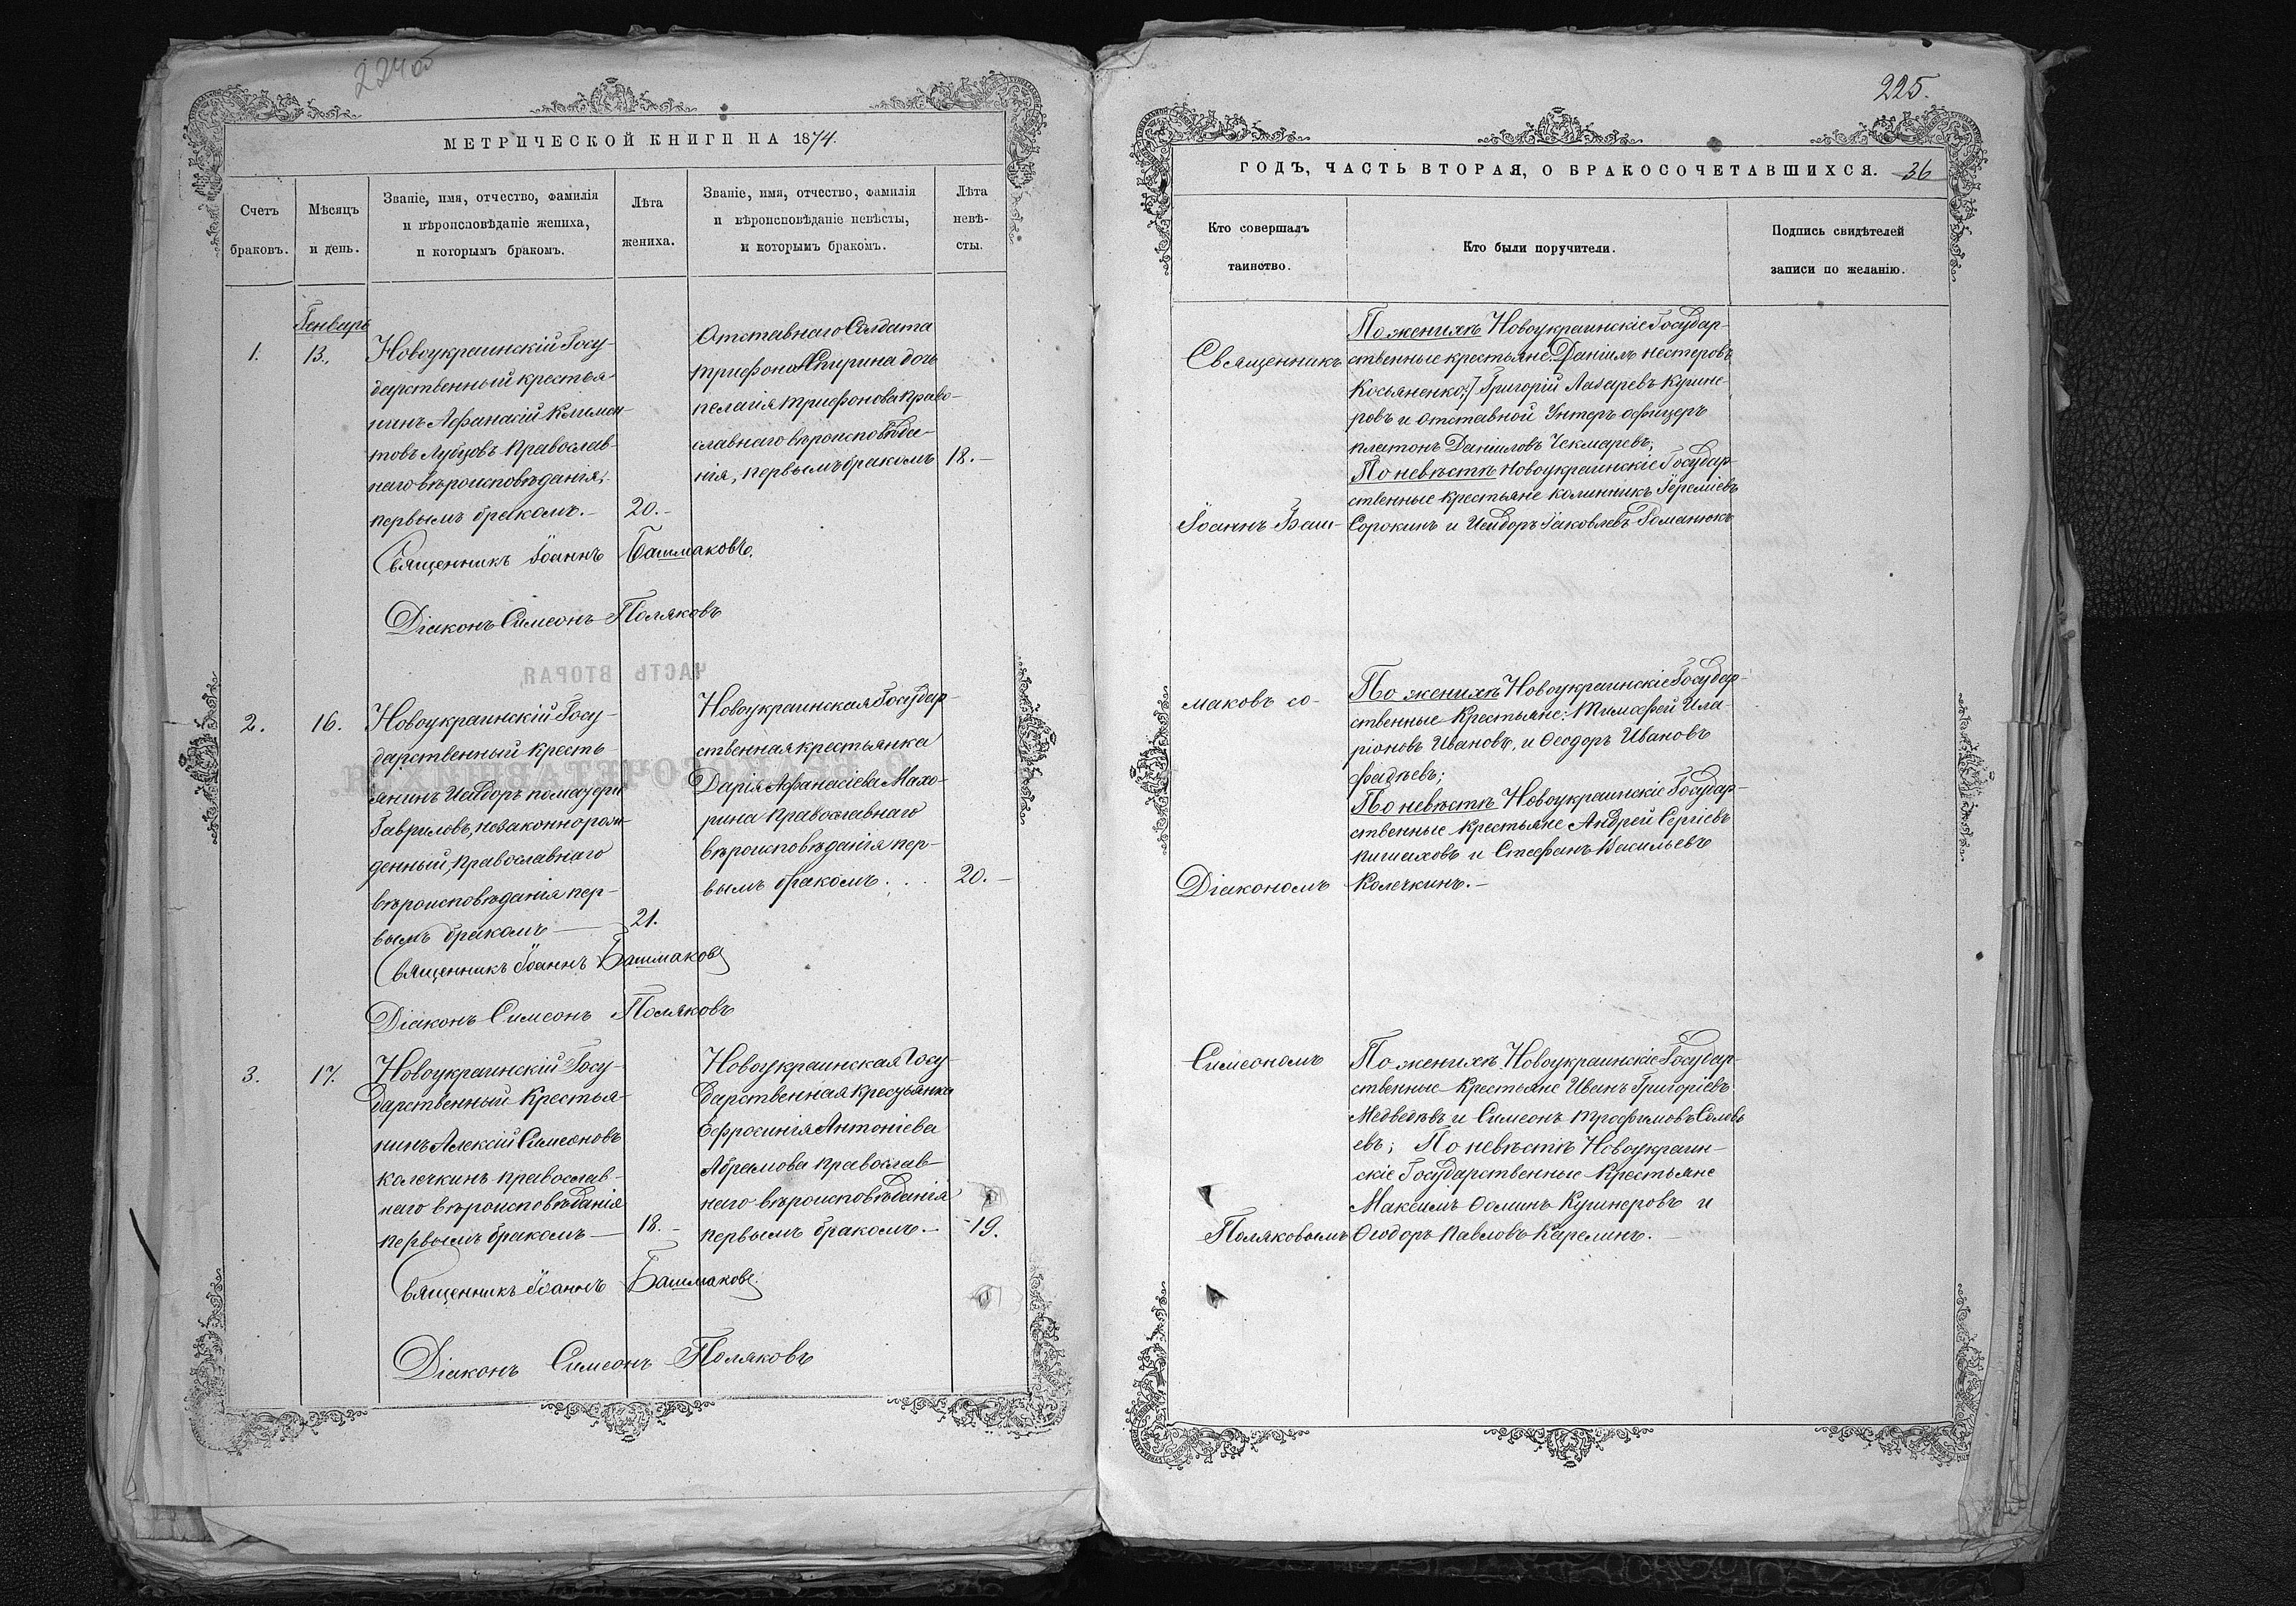 224 об
МЕТРИЧЕСКОЙ КНИГИ НА 1874.
Счетъ
браковъ.
Мѣсяцъ
и день.
Званіе, имя, отчество, фамилія
и вѣроисповѣданіе жениха,
и которымъ бракомъ.
Лѣта
жениха.
Званіе, имя, отчество, фамилія
и вѣроисповѣданіе невѣсты,
и которымъ бракомъ.
Лѣта
невѣ-
сты.
Генваря
1.
13.
Новоукраинскій Госу-
дарственный крестья-
нинъ Афанасій Климен-
товъ Лубцовъ Православ-
наго вѣроисповѣданія,
первымъ бракомъ.-
20.-
Отставнаго Солдата
Трифона дочь
пелагія Трифонова Право-
славнаго вѣроисповѣда-
нія, первымъ бракомъ
18.-
Священникъ Іоаннъ Башмаковъ.
Діаконъ Симеонъ Поляковъ
2.
16.
Новоукраинскій Госу-
дарственный кресть-
янинъ Исидоръ по матери
Гавриловъ, незаконнорож-
денный, православнаго
вѣроисповѣданія пер-
вымъ бракомъ —
21.
Новоукраинская Государ-
ственная крестьянка
Дарія Афанасіева Махо-
рина православнаго
вѣроисповѣданія пер-
вымъ бракомъ. . .
20.-
Священникъ Іоаннъ Башмаковъ
Діаконъ Симеонъ Поляковъ
3.
17.
Новоукраинскій Госу-
дарственный Крестья-
нинъ Алексій Симеоновъ
Колечкинъ православ-
наго вѣроисповѣданія
первымъ бракомъ —
18.-
Новоукраинская Госу-
дарственная крестьянка
Ефросинія Антоніева
Абрамова православ-
наго вѣроисповѣданія
первымъ бракомъ.-
19.
Священникъ Іоаннъ Башмаковъ.
Діаконъ Симеонъ Поляковъ
225.
ГОДЪ, ЧАСТЬ ВТОРАЯ, О БРАКОСОЧЕТАВШИХСЯ. 36
Кто совершалъ
таинство.
Кто были поручители.
Подпись свидѣтелей
записи по желанію.
Священникъ
Іоаннъ Баш-
маковъ со-
Діакономъ
Симеономъ
Поляковымъ
По женихѣ Новоукраинскіе Государ-
ственные крестьяне: Даніилъ Нестеровъ
Косьяненко; Григорій Лазаревъ Кушне-
ровъ и отставной Унтеръ офицеръ
платонъ Даніиловъ Чекмаревъ;
По невѣстѣ Новоукраинскіе Государ-
ственные крестьяне калинникъ Іереміевъ
Сорокинъ и Исидоръ Іаковлевъ Романюкъ
По женихѣ Новоукраинскіе Государ-
ственные Крестьяне: Тимофей Ила-
ріоновъ Ивановъ, и Ѳеодоръ Ивановъ
Фадѣевъ;
По невѣстѣ Новоукраинскіе Государ-
ственные крестьяне Андрей Сергіевъ
и Стефанъ Васильевъ
Колечкинъ.-
По женихѣ Новоукраинскіе Государ-
ственные Крестьяне Иванъ Григоріевъ
Медведѣвъ и Симеонъ Трофимовъ Соловь
евъ; По невѣстѣ Новоукраин-
скіе Государственные Крестьяне
Максимъ Ѳоминъ Кушнеровъ и
Ѳеодоръ Павловъ Карелинъ.-